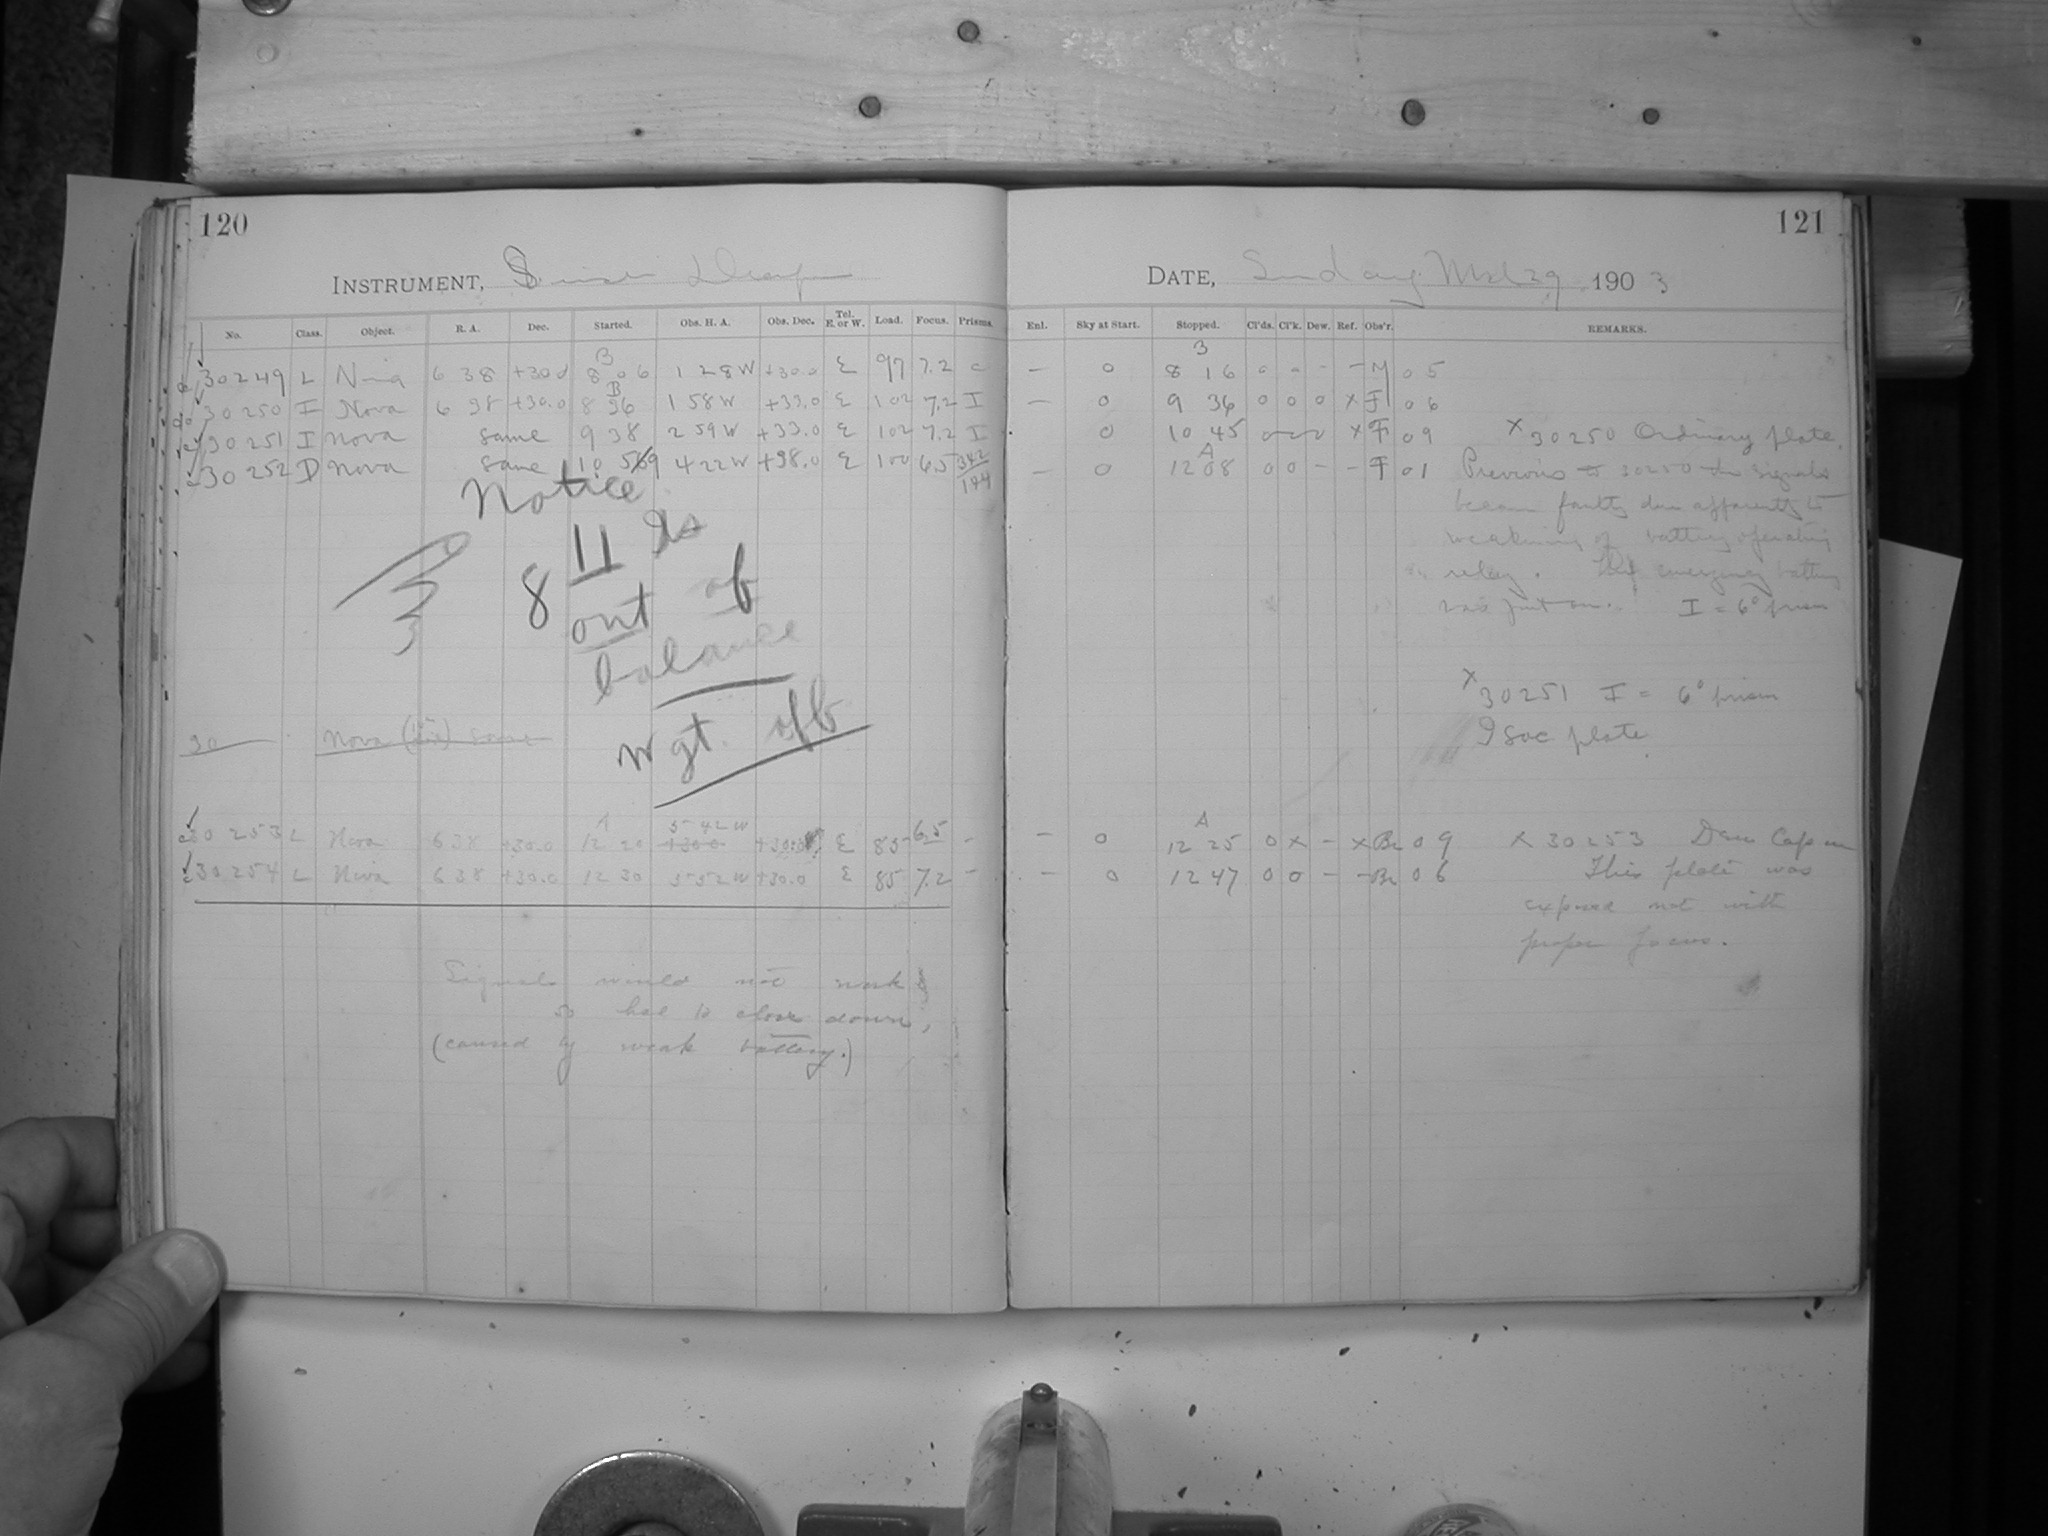 120
INSTRUMENT,
No. Class. Object. R. A. Dec. Started. Obs. H. A. Obs. Dec. Tel. E. or W. Load. Focus. Prisms.
B
30249 L Nova 6 38 +30.0 8 06 1 28 W +30.0 E 97 7.2
B
30250 I Nova 6 38 +30.0 8 36 1 58 W +33.0 E 102 7.2 I
30251 I Nova same 9 38 2 59 W +33.0 E 102 7.2 I
30252 D Nova same 10 4 22 W +38.0 E 100 6.5
Notice
8 11 Is
out of
balance
Wgt. off
30 Nova same
A 5 42 W
30253 L Nova 6 38 +30.0 12 20 +30.0 +30.0 E 85 6.5 -
30254 L Nova 6 38 +30.0 12 30 5 52 W +30.0 E 85 7.2 -
Signals would not work
so had to close down,
(caused by weak battery.)
121
DATE, Sunday Mch 29 1903
Enl. Sky at Start. Stopped. Cl'ds. Cl'k. Dew. Ref. Obs'r. REMARKS.
B
— 0 8 16 0 - - - M 05
— 0 9 36 0 0 0 X F 06
0 10 45 0 0 0 X F 09 X 30250 Ordinary plate.
A
— 0 12 08 0 0 - - F 01 Previous to 30250 the signals
became faulty due apparently to
weakening of battery operating
relay. The emergency battery
was put on. I = 6° prism
X 30251 I = 6° prism
Isoc plate
A
— 0 12 25 0 X - X Br 09 X 30253 Dew Cap on
— 0 12 47 0 0 - - Br 06 This plate was
exposed not with
proper focus.